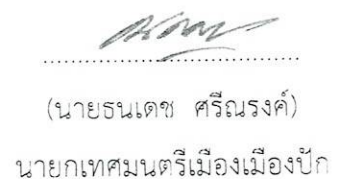 (นายธนเดช ศรีณรงค์)
นายกเทศมนตรีเมืองเมืองปัก